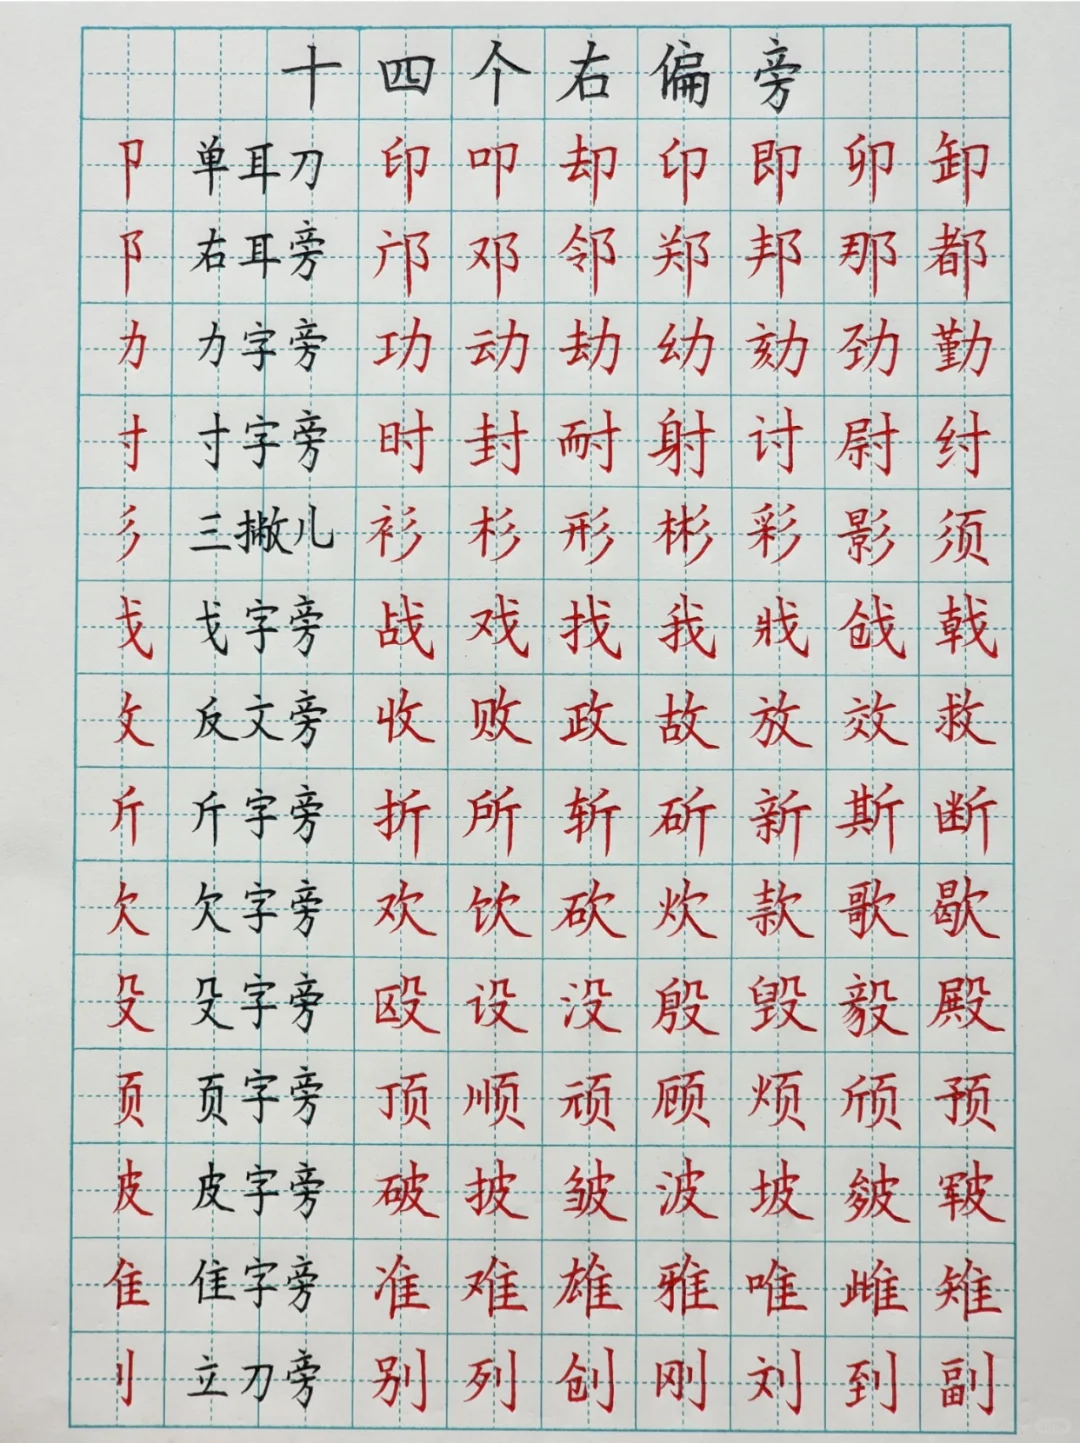 十四个右偏旁
卩 单耳刀 印 叩 却 卬 即 卯 卸
阝 右耳旁 邝 邓 邻 郑 邦 那 都
力 力字旁 功 动 劫 幼 劾 劲 勤
寸 寸字旁 时 封 耐 射 讨 尉 纣
彡 三撇儿 衫 杉 形 彬 彩 影 须
戈 戈字旁 战 戏 找 我 戕 戗 戟
攵 反文旁 收 败 政 故 放 效 救
斤 斤字旁 折 所 斩 斫 新 斯 断
欠 欠字旁 欢 饮 砍 炊 款 歌 歇
殳 殳字旁 殴 设 没 殷 毁 毅 殿
页 页字旁 顶 顺 顽 顾 烦 颀 预
皮 皮字旁 破 披 皱 波 坡
隹 隹字旁 准 难 雄 雅 唯 雌 雉
刂 立刀旁 别 列 创 刚 刘 到 副